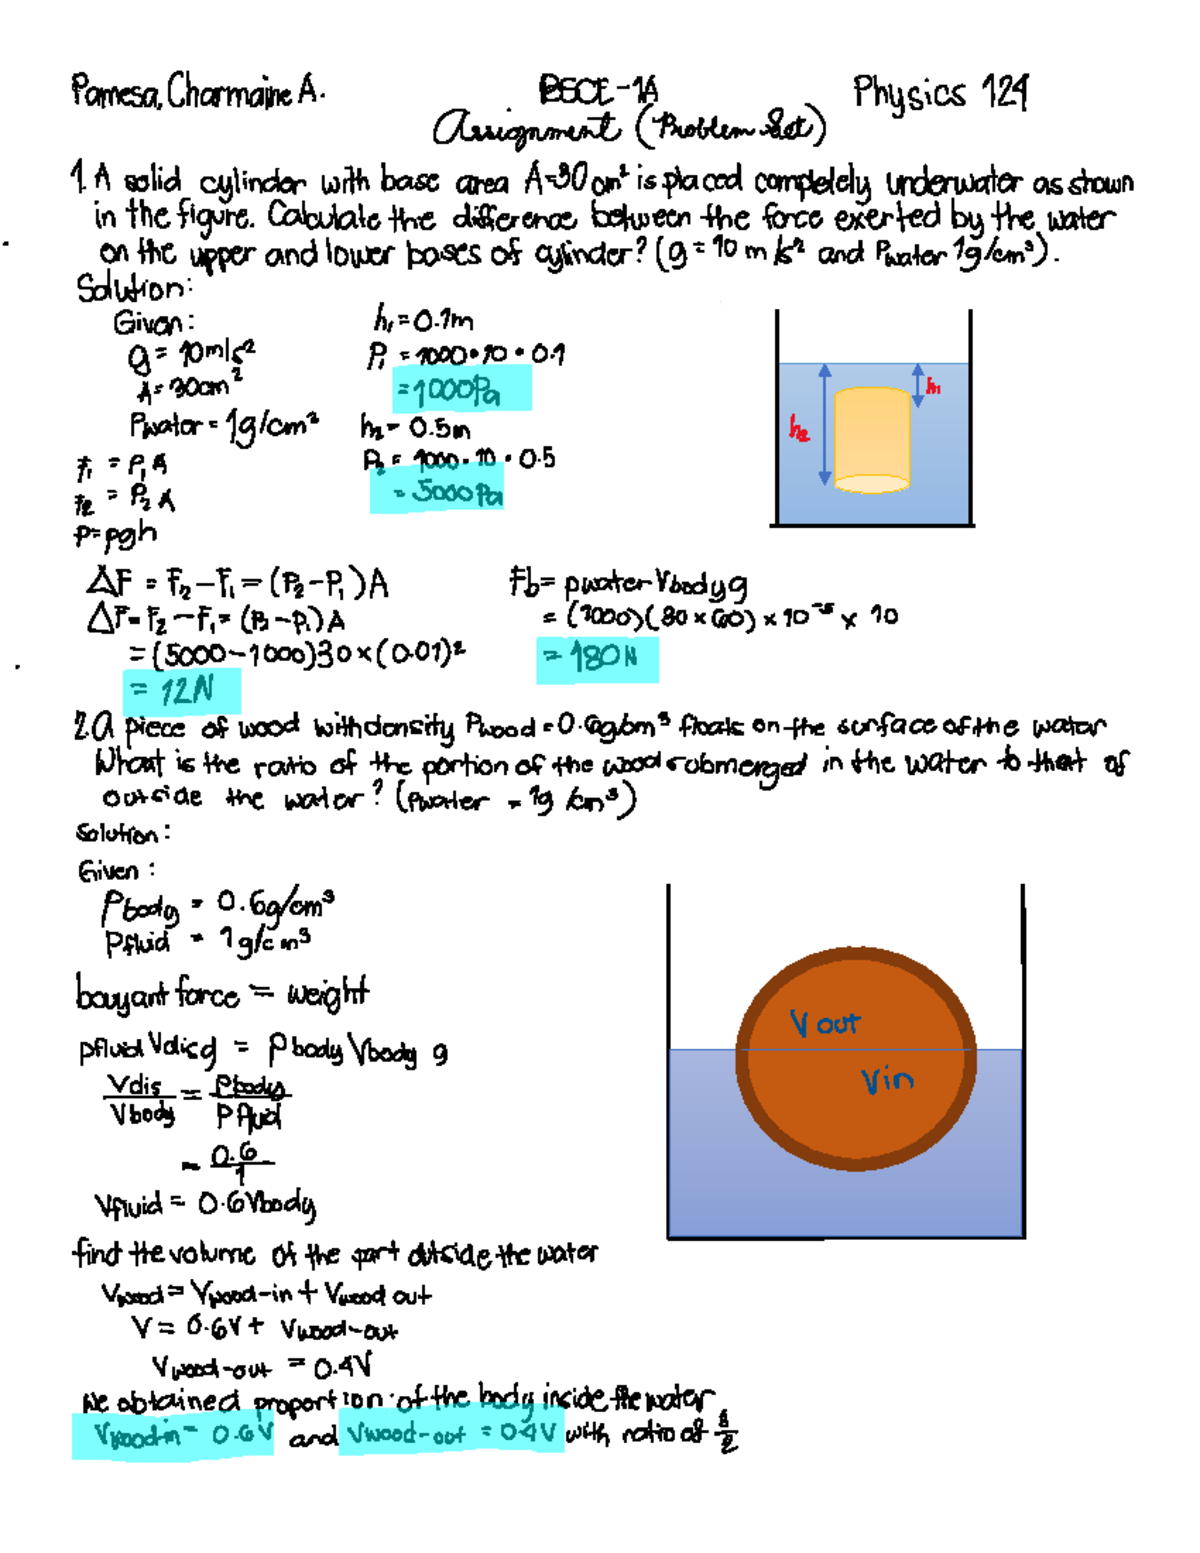 Pamesa, Charmaine A. BSCE-1A Physics 124
Assignment (Problem Set)
1. A solid cylinder with base area A=30cm² is placed completely underwater as shown
in the figure. Calculate the difference between the force exerted by the water
on the upper and lower bases of cylinder? (g = 10 m/s² and ρwater 1g/cm³).
Solution:
Given:
g = 10m/s²
A = 30cm²
ρwater = 1g/cm³
F₁ = P₁A
F₂ = P₂A
P=ρgh
h₁ = 0.1m
P₁ = 1000•10•0.1
= 1000Pa
h₂ = 0.5m
P₂ = 1000•10•0.5
= 5000Pa
h₁
h₂
ΔF = F₂-F₁ = (P₂-P₁)A
ΔF = F₂-F₁ = (P₂-P₁)A
= (5000-1000)30×(0.01)²
= 12N
Fb = ρwater Vbody g
= (1000)(30×60)×10⁻⁵ × 10
= 180N
2. A piece of wood with density ρwood = 0.6g/cm³ floats on the surface of the water
What is the ratio of the portion of the wood submerged in the water to that of
outside the water? (ρwater = 1g/cm³)
Solution:
Given:
ρbody = 0.6g/cm³
ρfluid = 1g/cm³
bouyant force = weight
ρfluid Vdis g = ρbody Vbody g
Vdis/Vbody = ρbody/ρfluid
= 0.6/1
Vfluid = 0.6Vbody
V out
Vin
find the volume of the part outside the water
Vwood = Vwood-in + Vwood out
V = 0.6V + Vwood-out
Vwood-out = 0.4V
We obtained proportion of the body inside the water
Vwood-in = 0.6V and Vwood-out = 0.4V with ratio of